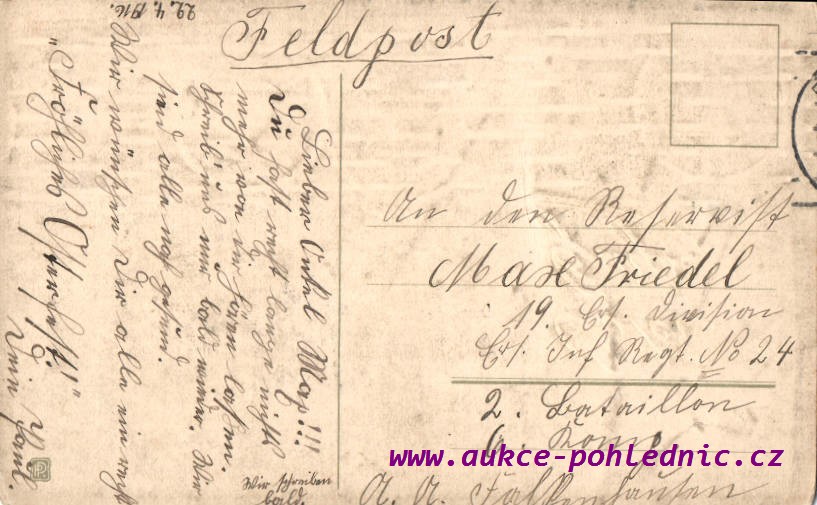 29. 4. 1916.
Feldpost
Lieber Onkel Max!!!
Du hast recht lange nichts
mehr von Dir hören lassen.
Schreib uns nur bald wieder. Wir
sind alle noch gesund.
Wir wünschen Dir alle ein recht
"Fröhliches Osterfest!"
Dein
Wir schreiben
bald.
An den Reservist
Max Friedel
19. Ers. Division
Ers. Inf Regt. No 24
2. Bataillon
6. Komp.
A. A. Falkenhausen
www.aukce-pohlednic.cz